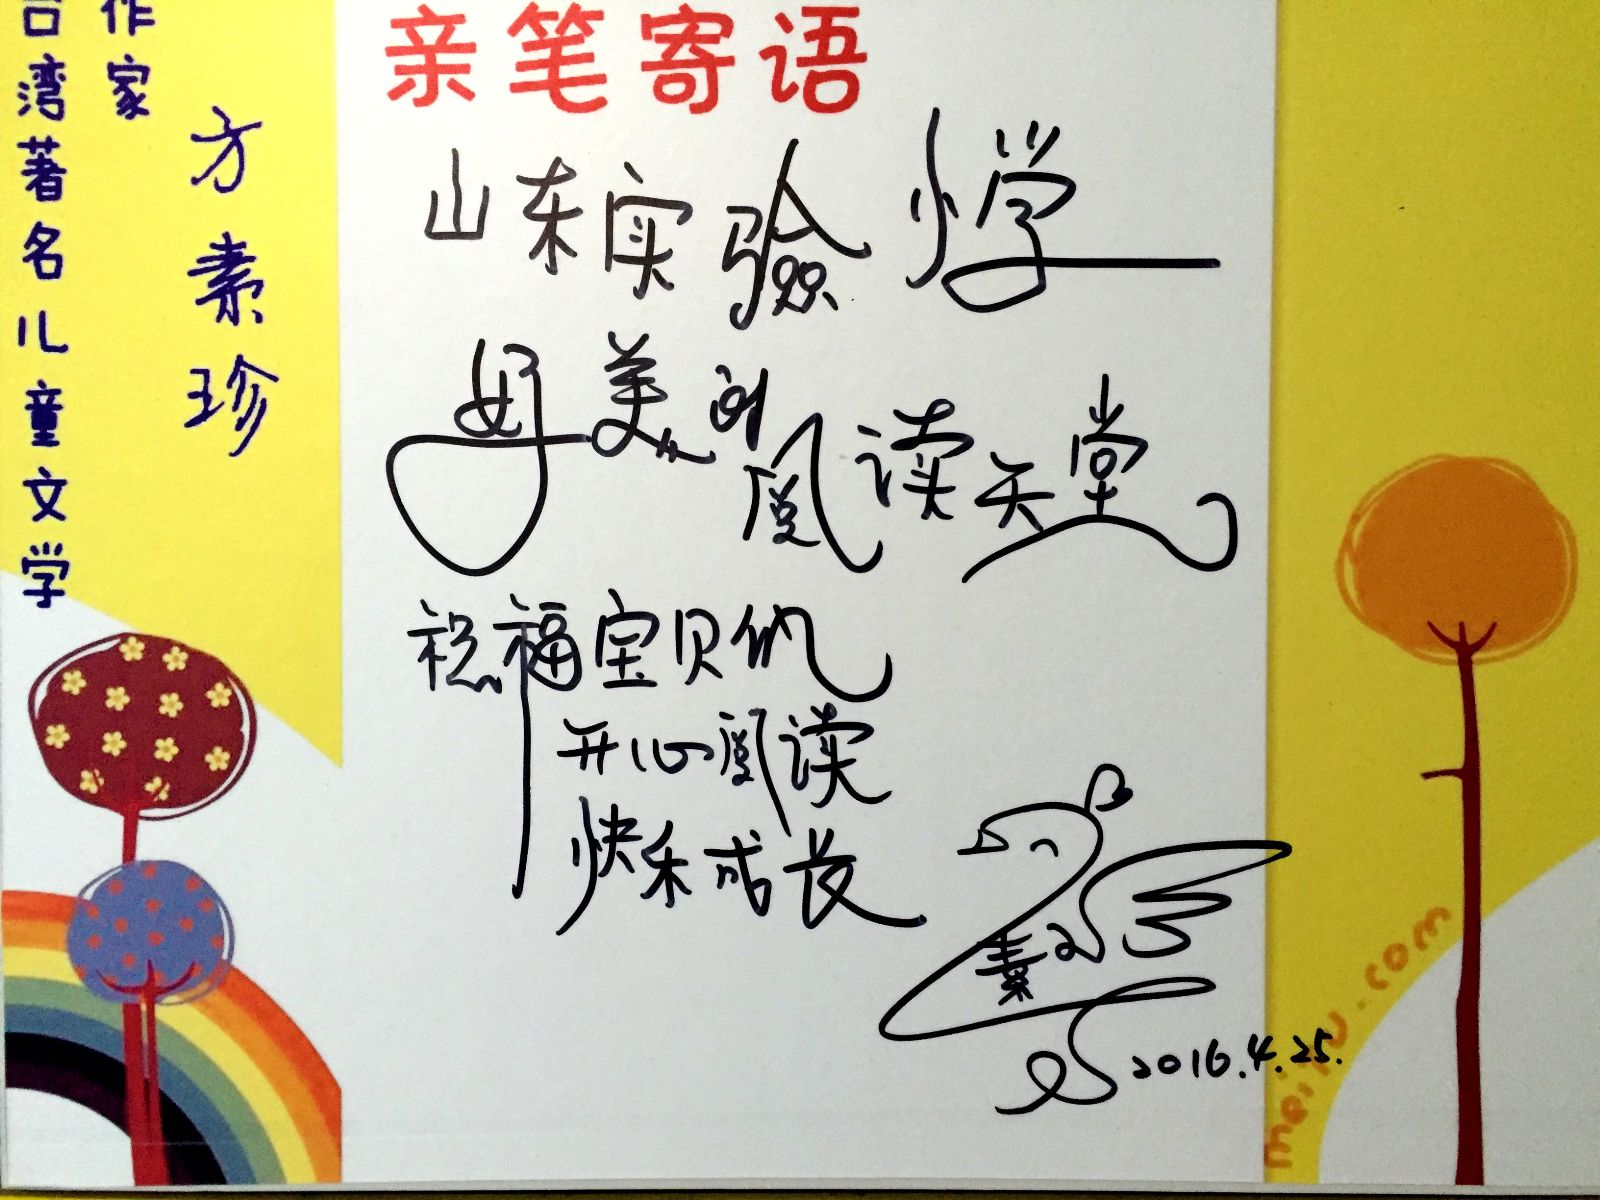 台湾著名儿童文学
作家
方素珍
亲笔寄语
山东实验小学
好美的阅读天堂
祝福宝贝们
开心阅读
快乐成长
素
2016.4.25.
meitu.com